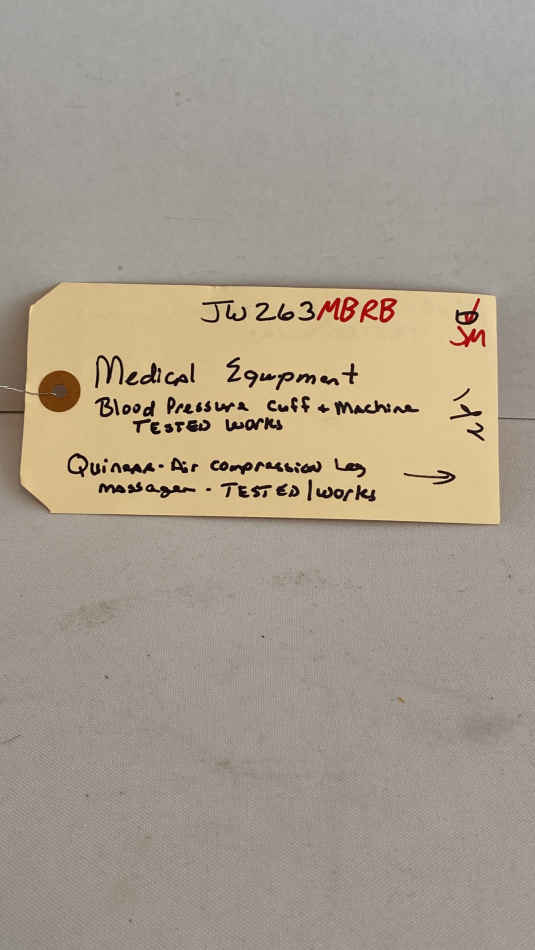 JW263MBRB
JM
Medical Equipment
Blood Pressure Cuff + Machine
TESTED works
Air compression Leg
massager - TESTED/works →